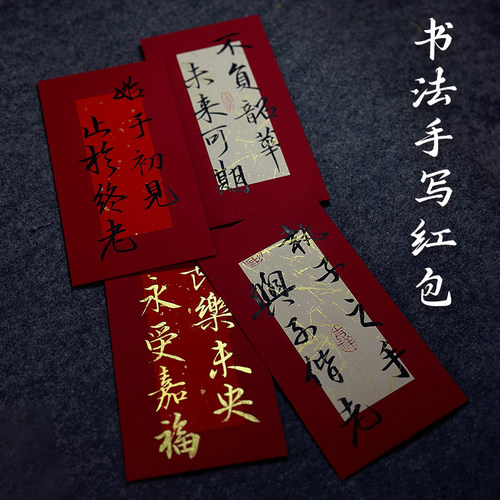 书法手写红包
不負韶華
未来可期
始于初見
止於終老
樂未央
永受嘉福
執子之手
與子偕老